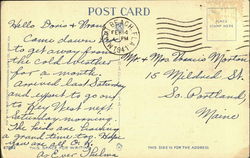 POST CARD
Hello Doris & Frank
Came down here
to get away from
the cold weather
for a month.
Arrived last Saturday
and expect to go on
to Key West next
Saturday morning.
The kids are having
a grand time too. Hope
you are all O.K.
As Ever Thelma
MIAMI BEACH, FLA.
FEB 14
PM
1941
PLACE
STAMP HERE
Mr & Mrs Francis Morton
15 Mildred St.
So. Portland,
Maine
THIS SPACE FOR WRITING